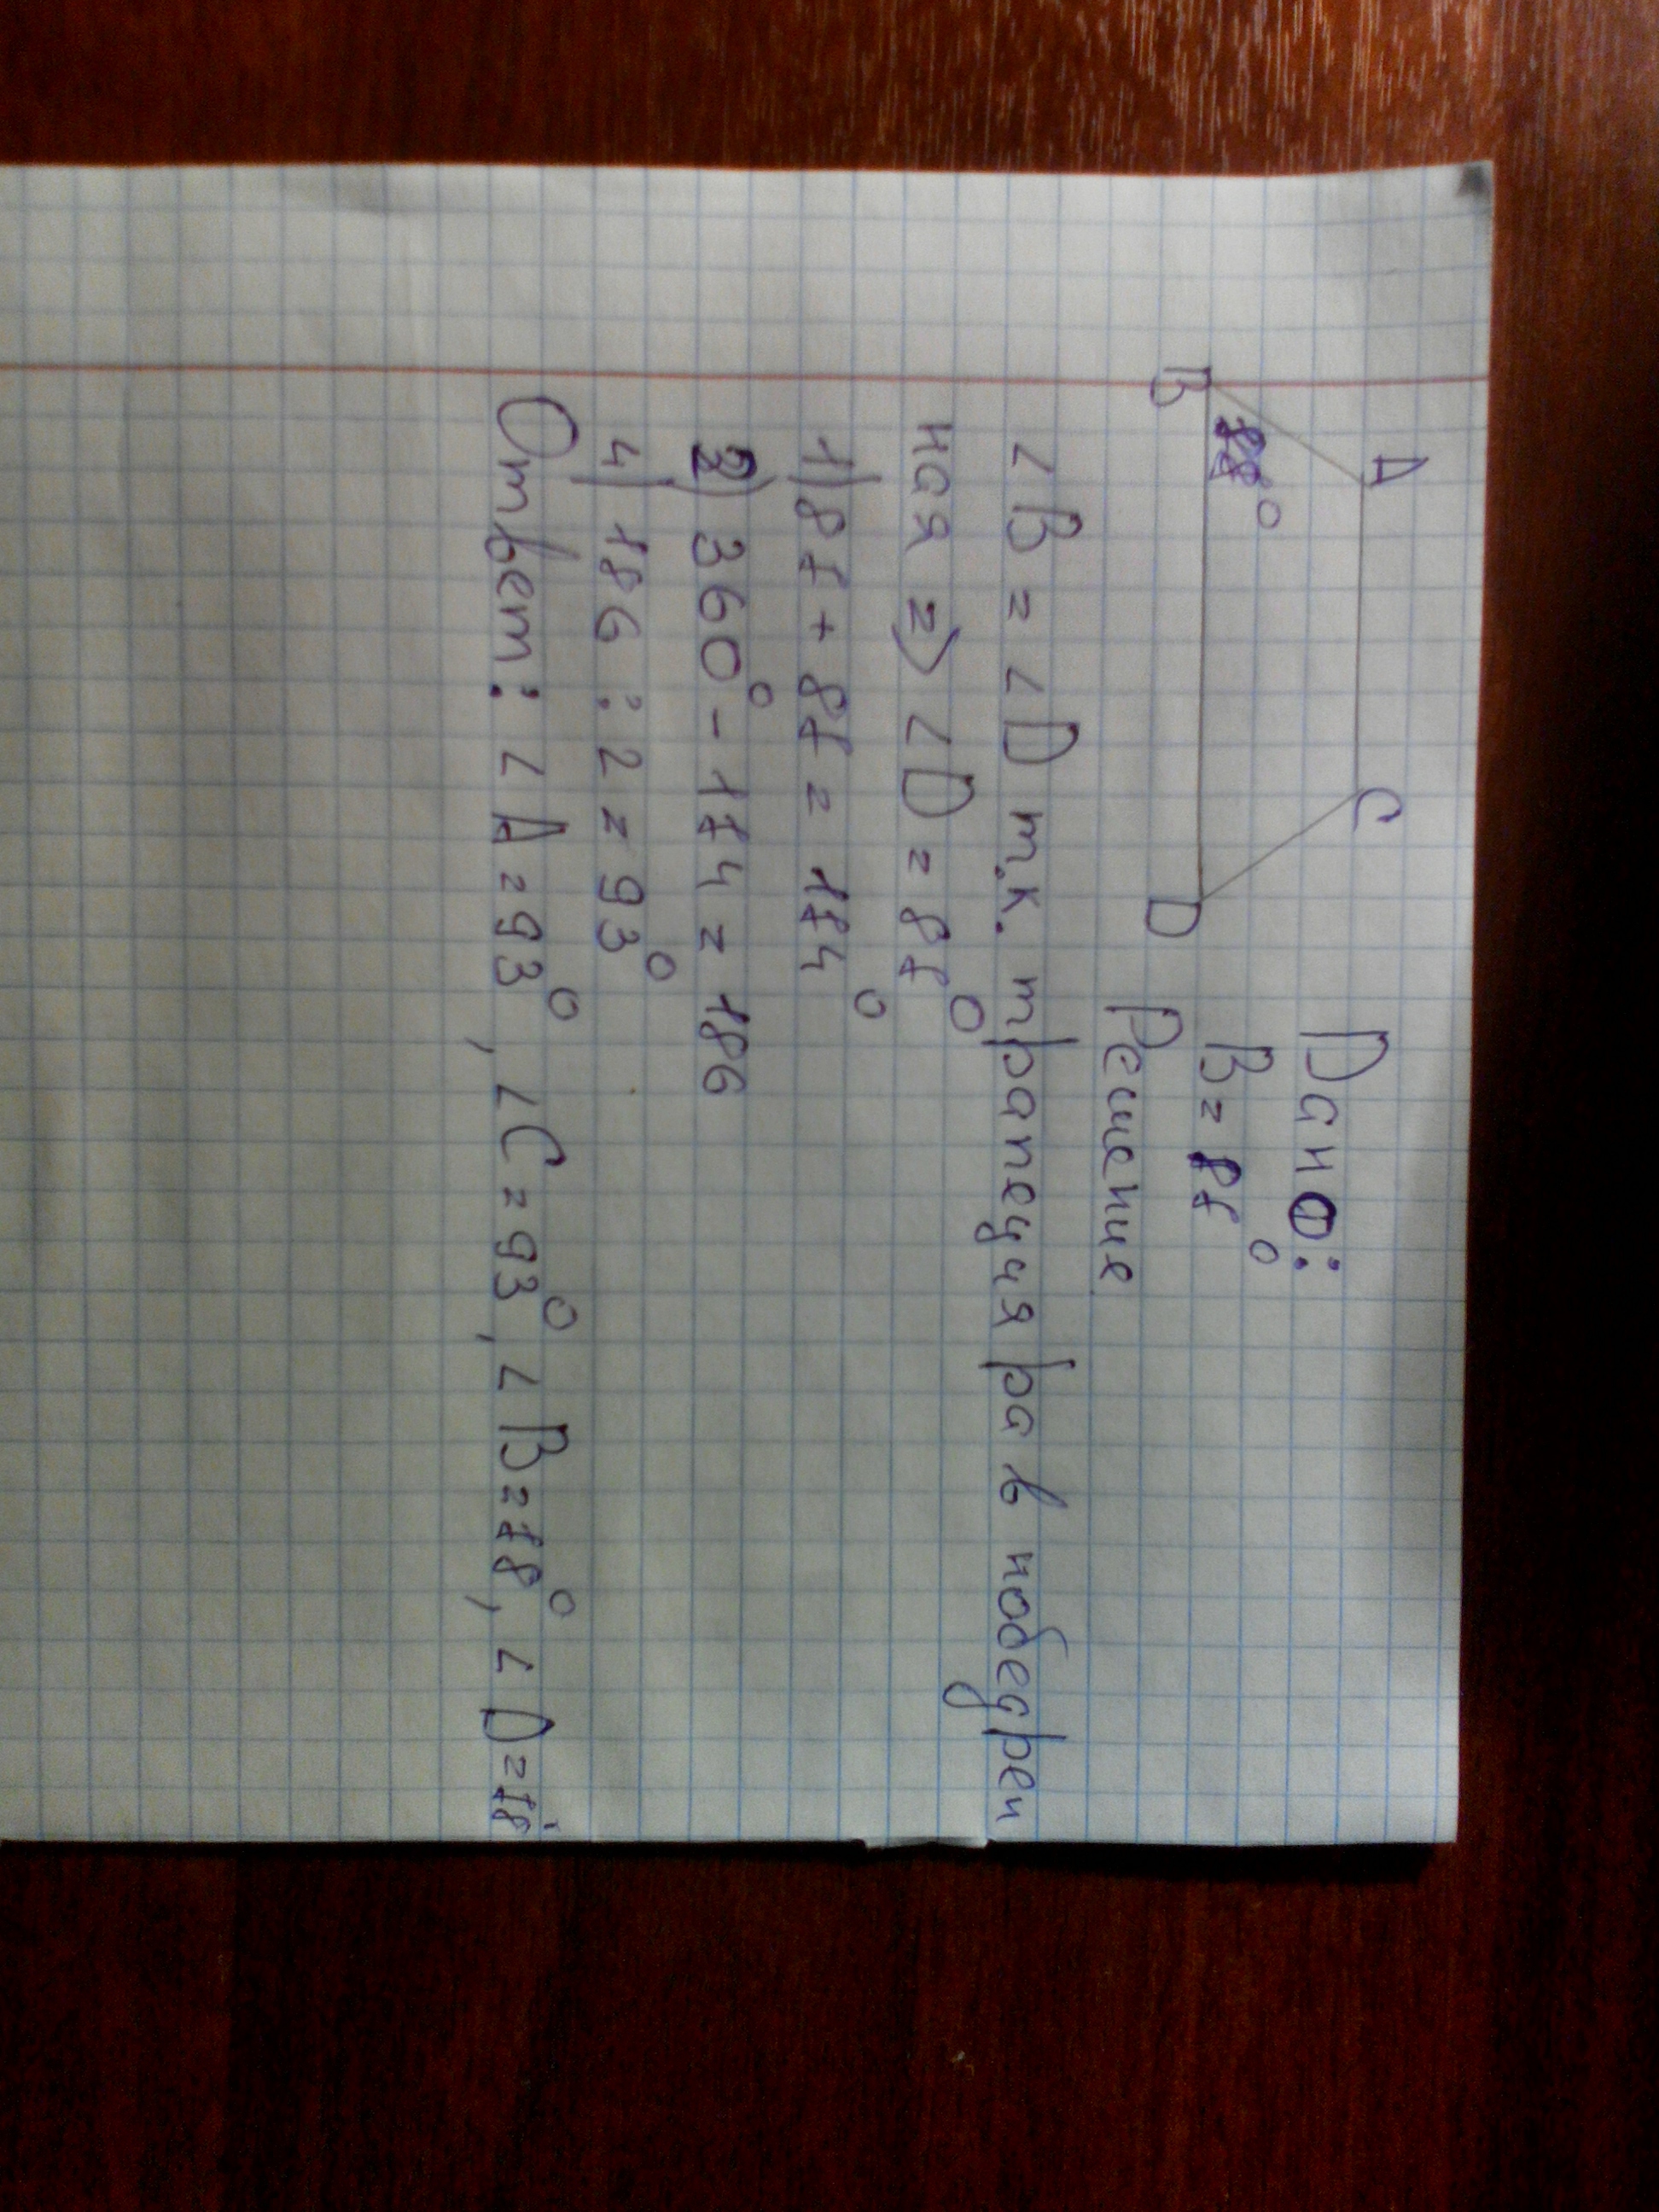 A C
Дано:
87°
B D
B=87°
Решение
∠B=∠D т.к. трапеция равнобедрен
ная => ∠D=87°
1) 87+87=174°
2) 360°-174=186
4) 186:2=93°
Ответ: ∠A=93°, ∠C=93°, ∠B=78°, ∠D=78°